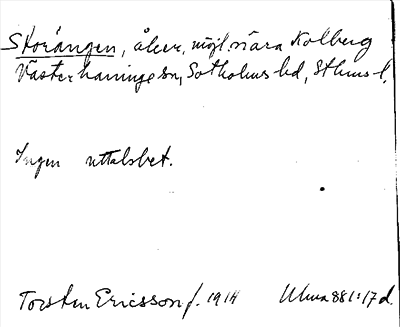 Storängen, åker, möjl. nära Kolberg
Västerhaninge sn, Sotholms hd, Sthms l.
Ingen uttalsbet.
Torsten Ericsson f. 1914 Ulua 881:17 d.